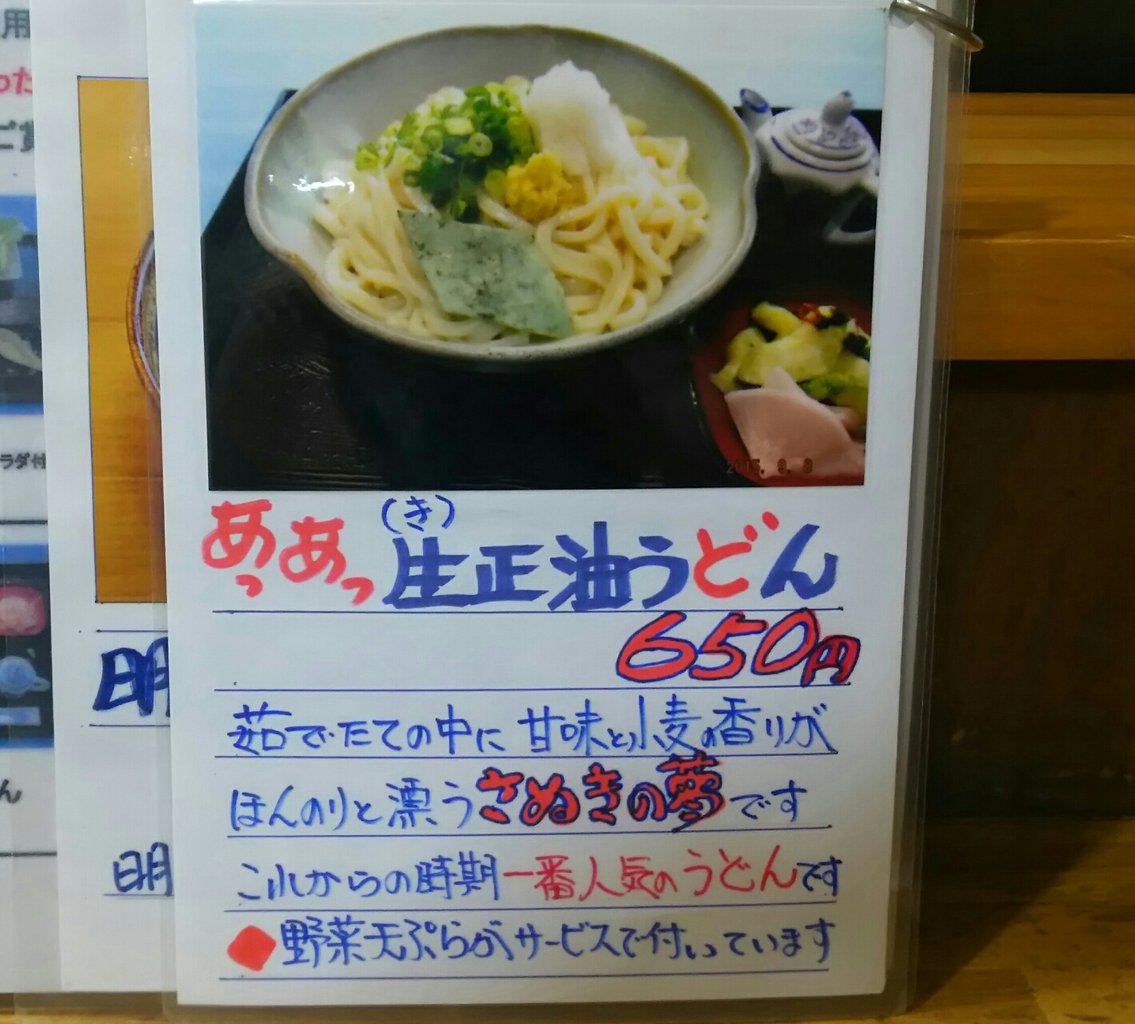 用
った
ご賞
ラダ付
ん
明
明
2015. 9. 8
(き)
あっあっ生正油うどん
650円
茹でたての中に甘味と小麦の香りが
ほんのりと漂うさぬきの夢です
これからの時期一番人気のうどんです
◆野菜天ぷらがサービスで付いています